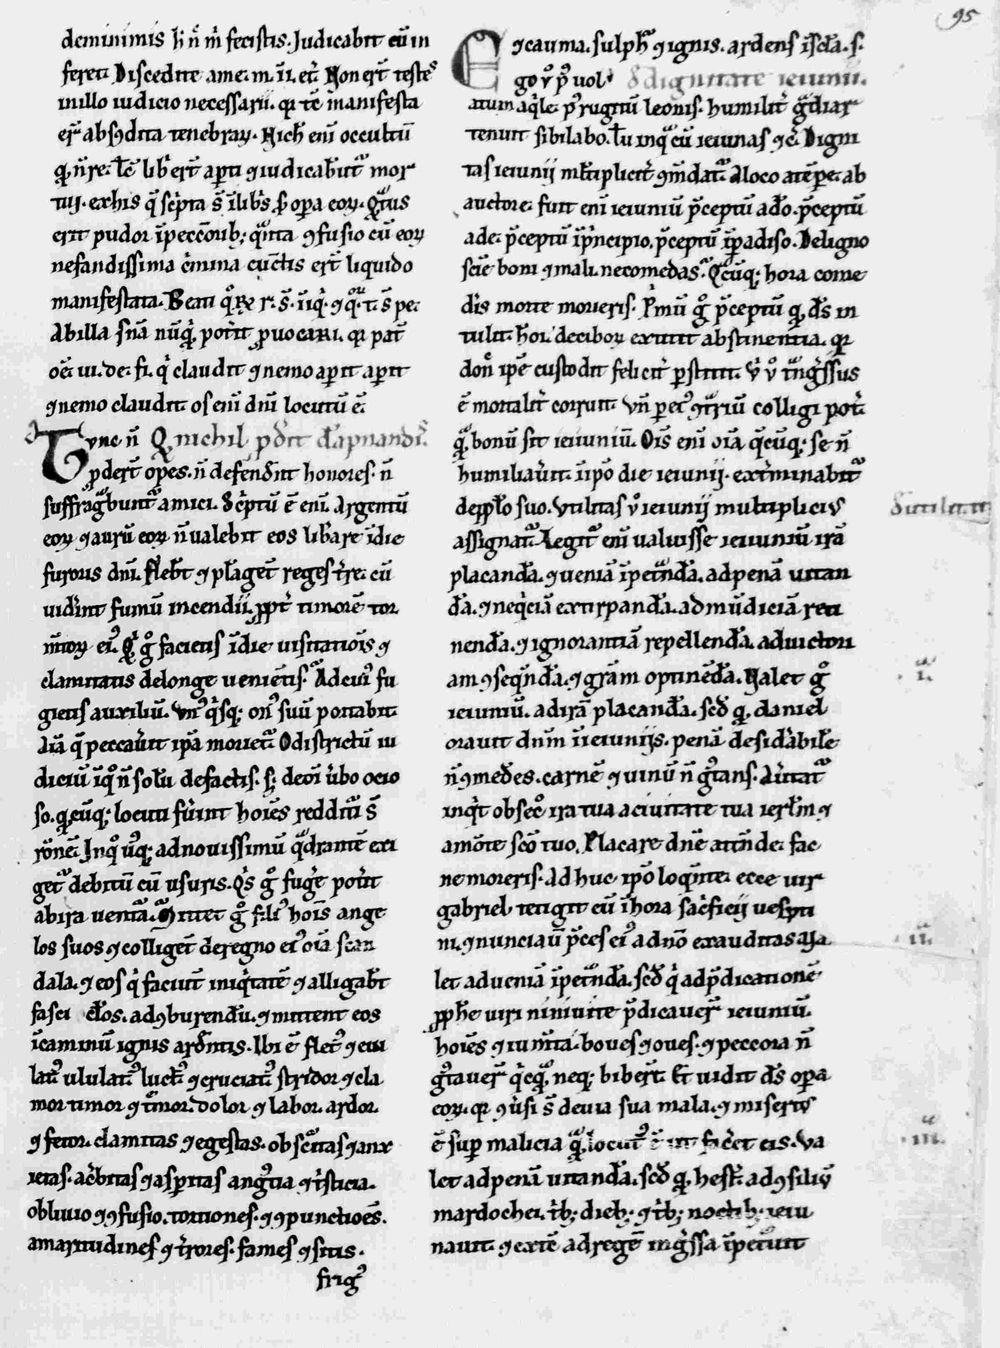 95
de minimis h̄ n̄ m̄ fecistis. Judicabit eū in
feret. Discedite a me. m. ii. et̄. Non erūt testes
in illo iudicio necessarii. qr tc̄ manifesta
er̄t abscondita tenebraꝝ. Nich̄ eni occultū
qd̄ n̄ re. Tc̄ libri er̄t apti ⁊ iudicabūt mor
tui. ex his q̄ sc̄pta s̄ ī libris. p̄ opa eoꝝ. Qͣtus
erit pudor ī peccōrib; qͣnta ꝯfusio cū eoꝝ
nefandissima c̄mina cūctis er̄t liquido
manifestata. Beati qͦꝝ
Ab illa sn̄a nūqͣ pot̄it ꝓuocari. qr pat̄
oē. iu. de. fi. qͥ claudit ⁊ nemo apit. apit
⁊ nemo claudit. os eni dn̄i locutū ē.
Tunc n̄ Qͦ nichil pd̄it dāpnandis.
pder̄t opes. n̄ defendēt honores. n̄
suffragabūt amici. Sc̄ptū ē eni. Argentū
eoꝝ ⁊ aurū eoꝝ n̄ valebit eos lib̄are ī die
furoris dn̄i. Flebt̄ ⁊ plāget̄ reges t̄re. cū
vid̄int fumū incendii. ꝓpt̄ timorē tor
mētoꝝ eiꝰ. Qͥd gͦ facietis ī die visitatiōis ⁊
clamitatis de longe uenietis. Ad cuiꝰ fu
gietis auxiliū. Vnꝰ qͥsq; onꝰ suū portabit.
Aīa q̄ peccaūit ip̄a morietͣ. O districtū iu
diciū ī qͦ n̄ solū de factis. s; de oī ūbo ocio
so. qd̄cūq; locuti fūint hoies redditͥ s̄
rōnē. Inqͦ usq; ad novissimū qͣdrantē exi
getͣ debitū cū usuris. Qͥs gͦ fuḡe potit
ab ira uentͣ. Mittet gͦ filiꝰ hois ange
los suos ⁊ colliget̄ de regno eiꝰ oīa scan
dala. ⁊ eos qͥ faciūt iniqͥtatē ⁊ alligabt̄
fasci eḷos. ad ꝯburendū. ⁊ mittent eos
ī caminū ignis ard̄ntis. Ibi ē fletꝰ ⁊ eiu
latꝰ ululatꝰ luctꝰ ⁊ cruciatꝰ stridor ⁊ cla
mor timor ⁊ t̄mor. dolor ⁊ labor. ardor
⁊ fetor. clamitas ⁊ egestas. obsc̄itas ⁊ anx
ietas. ac̄bitas ⁊ aspitas angͣtia ⁊ tͥsticia.
oblivio ⁊ ꝯfusio. tortiones. ⁊ ꝯpunctiōes.
amaritudines ⁊ t̄rores. fames ⁊ sitis.
frigꝰ
E ⁊ cauma. sulph̄ ⁊ ignis. ardens ī sc̄la. s.
De dignitate ieiunii.
rugitū leonis. humilit̄
tenuit sibilabo. tu inqͥ cū ieiunas ⁊c̄. Digni
tas ieiunii mltiplicit̄ ꝯmēdatͣ. A loco a tēpe. ab
auctore. fuit eni ieiuniū p̄ceptū a dō. p̄ceptū
ade. p̄ceptū ī pͥncipio. p̄ceptū ī padiso. De ligno
scīe boni ⁊ mali. ne comedas. Qͣcūq; hora come
d̄is morte morieris. Pͥmū gͦ p̄ceptū qd̄ dš in
tulit. hoī. de ciboꝝ extitit abstinentia. qr
donͨ ip̄e custodit felicit̄ pstitit. ꝟ ꝟͦ tͣnsg̃ssus
ē mortalit̄ corruit. Vn̄ p et ꝯͣtͣriū colligi pot̄.
qd̄ bonū sit ieiuniū. Oīs eni aīa q̄cūq; se n̄
humiliaūit. in ip̄o die ieiunij. ext̄minabitͣ
de pplo suo. Vtilitas ꝟͦ ieiunij multipliciꝰ
assignatͣ. Legitͣ eni valuisse ieiuniū irā
placandā. ⁊ ueniā īpetrādā. ad penā uitan
dā. ⁊ neqͥciā extirpandā. ad mūdiciā reti
nendā. ⁊ ignorantiā repellendā. ad victori
am ꝯseqͣndā. ⁊ gr̄am optinēdā. Valet gͦ
ieiuniū. ad irā placandā. sed̄ qd̄ daniel
oravit dn̄m ī ieiuniis. penā desid̄abile
n̄ ꝯmedes. carnē ⁊ vinū n̄ gͥtans. Auertatͣ
inqͥt obsecͦ ira tua a civitate tua ierl̄m ⁊
a mōte scō tuo. Placare dn̄e attēde. fac
ne moreris. Ad huc ip̄o loqͣnte. ecce vir
gabriel tetigit eū ī hora sac̄ficii vespti
ni. ⁊ nunciaū p̄ces eiꝰ a dnō exauditas. Va
let ad ueniā īpetrādā. sed̄ qͥ ad p̄dicationē
ꝓph̄e viri ninivite p̄dicauer̄ ieiuniū.
hoies ⁊ iumēta. boues ⁊ oues. ⁊ peccora n̄
gͥtauer̄ qͥcqͣ. neq; biber̄t. Et vidit dš opa
eoꝝ. qr ꝯūsi s̄ de uia sua mala. ⁊ misertꝰ
ē sup malicia qͣ locutꝰ ē ut facet eis. Va
let ad penā uitandā. sed̄ qd̄ hest̄. ad ꝯsiliū
mardochei. tͥb; dieb; ⁊ tͥb; noctib; ieiu
nauit. ⁊ ex tē ad regē ing̃ssa īpetͣuit
De utilitate
i.
ii.
iii.